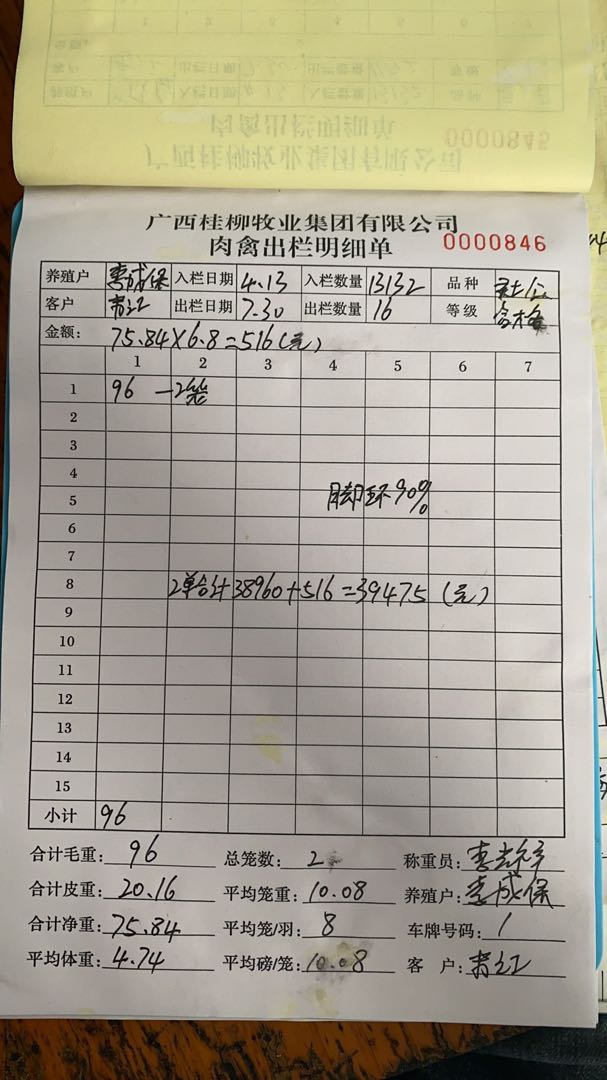 0000845
广西桂柳牧业集团有限公司
肉禽出栏明细单
0000846
养殖户 李成保 入栏日期 4.13 入栏数量 13132 品种
客户 出栏日期 7.30 出栏数量 16 等级 合格
金额: 75.84×6.8=516(元)
1 2 3 4 5 6 7
1 96 —2笼
2
3
4
5 脚环90%
6
7
8 2单合计38960+516=39475(元)
9
10
11
12
13
14
15
小计 96
合计毛重: 96 总笼数: 2 称重员:
合计皮重: 20.16 平均笼重: 10.08 养殖户: 李成保
合计净重: 75.84 平均笼/羽: 8 车牌号码: 1
平均体重: 4.74 平均磅/笼: 10.08 客户: